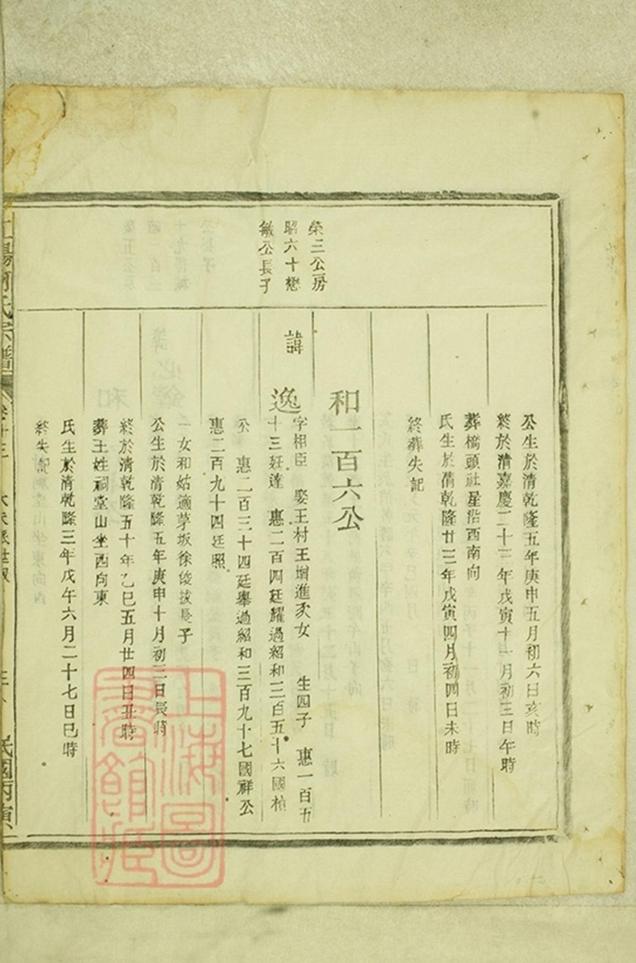 公生於清乾隆五年庚申五月初六日亥時
終於清嘉慶二十三年戊寅十一月初三日午時
葬橋頭社星沿西南向
氏生於清乾隆廿三年戊寅四月初四日未時
終葬失記
榮三公房
昭六十懋
敏公長子
和一百六公
諱
逸
字相臣 娶王村王增進次女 生四子 惠一百五
十三廷達 惠二百四廷耀過紹和三百五十六國楨
公 惠二百三十四廷舉過紹和三百九十七國祥公
惠二百九十四廷照
一女和姑適茅坂徐俊拔長子
公生於清乾隆五年庚申十月初三日辰時
終於清乾隆五十年乙巳五月廿四日丑時
葬王姓祠堂山坐西向東
氏生於清乾隆三年戊午六月二十七日巳時
終失記
氏宗譜
上海圖
書館藏